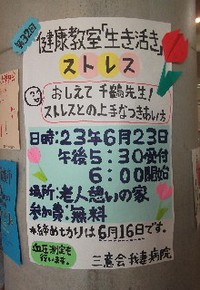 第32回
健康教室「生き活き」
ストレス
おしえて千鶴先生!
ストレスとの上手なつきあい方
日時:23年6月23日
午後5:30受付
6:00開始
場所:老人憩いの家
参加費:無料
※締めきりは6月16日です。
血圧測定も
行います。
三意会我妻病院